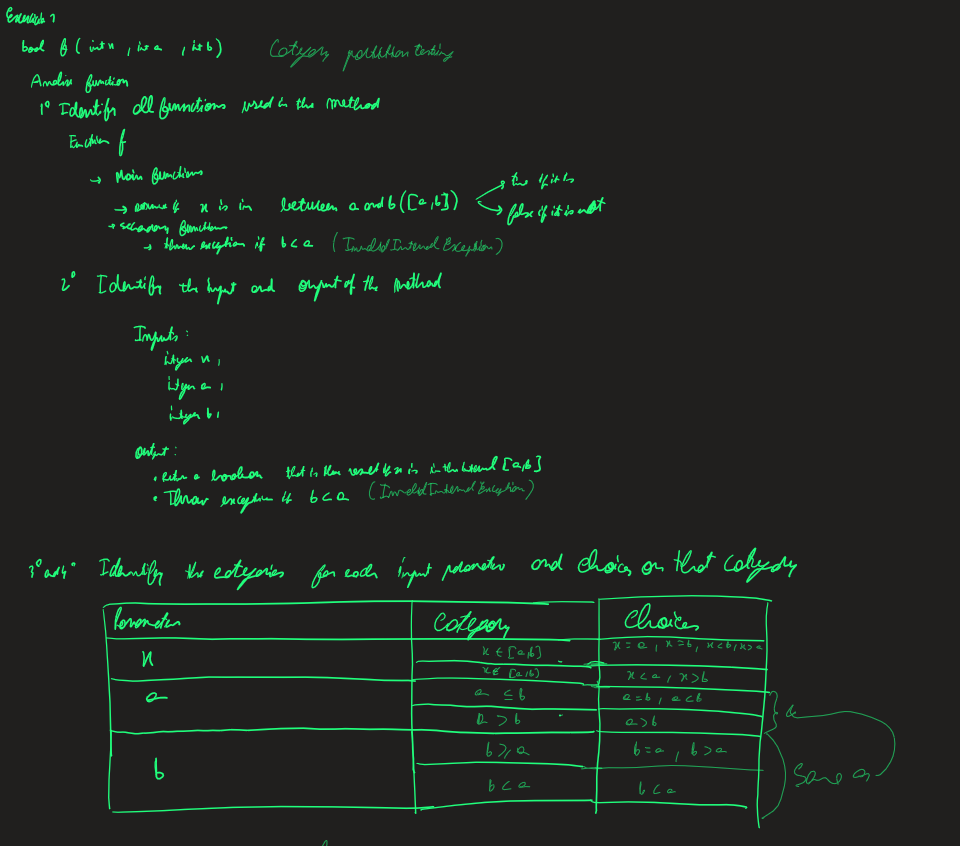 Exercicio 1
bool f ( int x , int a , int b ) Category partition testing
Analise function
1º Identify all functions used in the method
Function f
→ Main functions
→ x is in between a and b ([a,b]) → true if it is
→ false if it is not
→ secondary functions
→ throw exception if b < a (Invalid Interval Exception)
2º Identify the input and output of the method
Inputs :
integer x ,
integer a ,
integer b ,
output :
• a boolean that is the result if x is in the interval [a,b]
• Throw exception if b < a (Invalid Interval Exception)
3º and 4º Identify the categories for each input parameter and choices on that category
Parameter Category Choices
x x ∈ [a,b] x = a , x = b , x < b , x > a
x ∉ [a,b] x < a , x > b
a a ≤ b a = b , a < b
a > b a > b
b b ≥ a b = a , b > a
b < a b < a
Same as